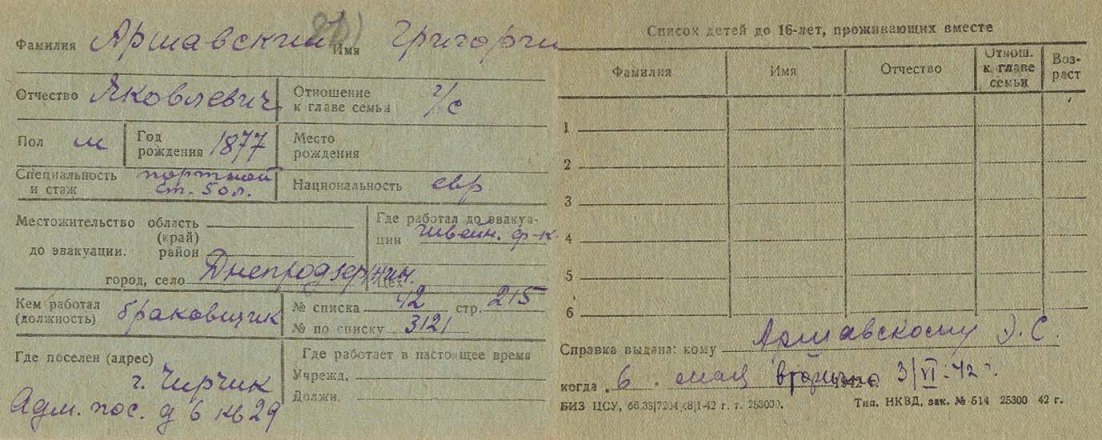 Фамилия Аршавский Имя Григорий
Отчество Яковлевич Отношение к главе семьи г/с
Пол м Год рождения 1877 Место рождения
Специальность и стаж портной ст. 50 л. Национальность евр
Местожительство до эвакуации: область (край)
район
город, село Днепродзержин.
Где работал до эвакуации швейн. ф-к
Кем работал (должность) браковщик № списка 42 стр. 215
№ по списку 3121
Где поселен (адрес)
г. Чирчик
Адм. пос. д 6 кв 29
Где работает в настоящее время
Учрежд.
Должн.
Список детей до 16-лет, проживающих вместе
Фамилия Имя Отчество Отнош. к главе семьи Возраст
1
2
3
4
5
6
Справка выдана: кому Аршавскому Э.С.
когда 6 мая 3/VI-42 г.
БИЗ ЦСУ, Тип. НКВД, зак. № 514 25300 42 г.